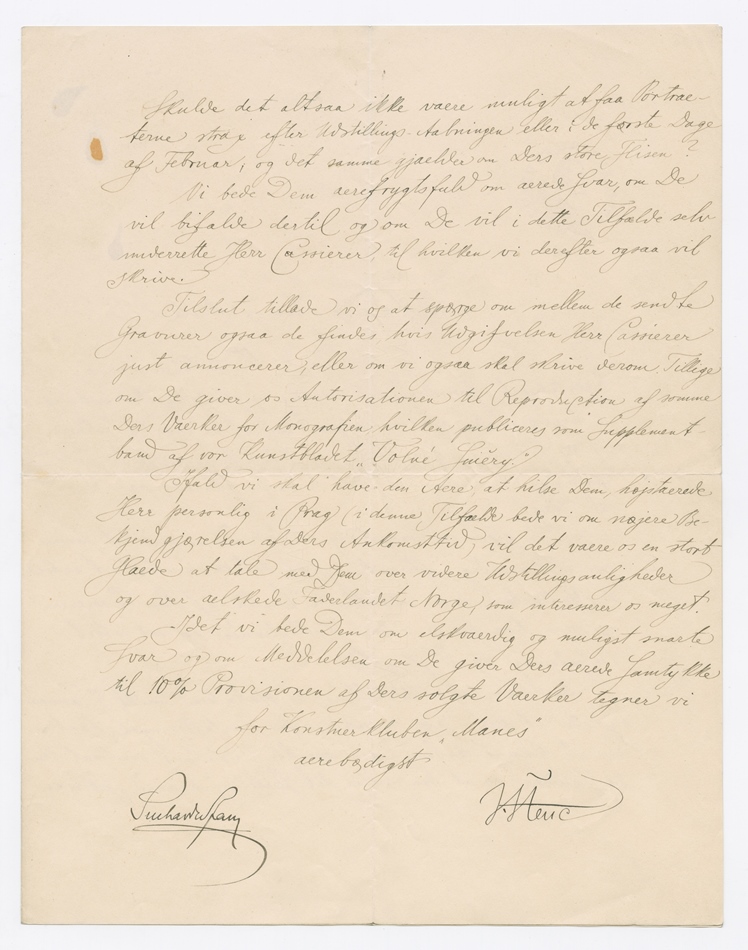 Skulde det altsaa ikke vaere muligt at faa Portrae-
terne strax efter Udstillings-Aabningen eller i de første Dage
af Februar, og det samme gjaelder om Ders store Frisen?
Vi bede Dem aerefrygtsfuld om aerede Svar, om De
vil bifalde dertil og om De vil i dette Tilfælde selv
underrette Herr Cassierer, til hvilken vi derefter ogsaa vil
skrive.
Tilslut tillade vi os at spørge om mellem de sendte
Gravurer ogsaa de findes, hvis Udgifvelsen Herr Cassierer
just annoncerer, eller om vi ogsaa skal skrive derom. Tillige
om De giver os Autorisationen til Reproduction af somme
Ders Vaerker for Monografien hvilken publiceres som Supplement-
band af vor Kunstbladet "Volné Směry."
Ifald vi skal have den Aere at hilse Dem, højstaerede
Herr personlig i Prag (i denne Tilfælde bede vi om nøjere Be-
kjendgjørelsen af Ders Ankomsttid, vil det vaere os en stort
Glaede at tale med Dem over videre Udstillingsanligheder
og over aelskede Faderlandet Norge, som interesserer os meget.
Idet vi bede Dem om elskvaerdig og muligst snarte
Svar og om Meddelelsen om De giver Ders aerede Samtykke
til 10% Provisionen af Ders solgte Vaerker tegner vi
for Konstnerkluben "Manes"
aerebødigst